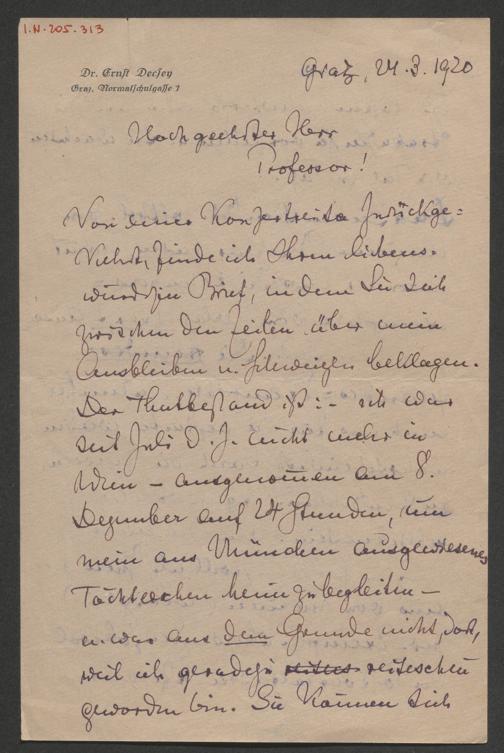 I.N. 205.313
Dr. Ernst Decsey
Graz, Normalschulgasse 1
Graz, 24.3.1920
Hochgeehrter Herr
Professor!
Von einer Konzertreise zurückge=
kehrt, finde ich Ihren liebens-
würdigen Brief, in dem Sie sich
zwischen den Zeilen über mein
Ausbleiben u. Schweigen beklagen.
Der Thatbestand ist: - ich war
seit Juli v. J. nicht mehr in
Wien – ausgenommen am 8.
Dezember auf 24 Stunden, um
mein aus München ausgewiesenes
Töchterchen heimzubegleiten –
u. war aus dem Grunde nicht dort,
weil ich geradezu reisescheu
geworden bin. Sie können sich